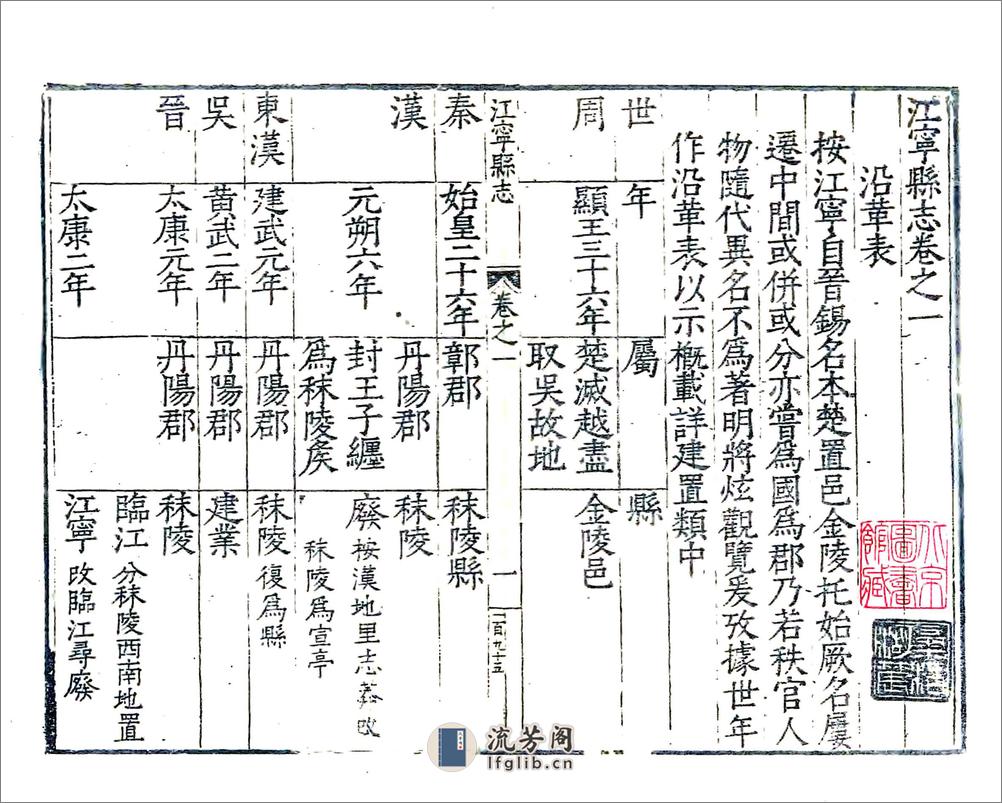 江寧縣志卷之一
沿革表
按江寧自晉錫名本楚置邑金陵托始厥名屢
遷中間或併或分亦嘗爲國爲郡乃若秩官人
物隨代異名不爲著明將炫觀覽爰攷據世年
作沿革表以示概載詳建置類中
世 年 屬 縣
周 顯王三十六年 楚滅越盡 金陵邑
取吳故地
江寧縣志 卷之一 一 一百九十五
秦 始皇二十六年 鄣郡 秣陵縣
漢 丹陽郡 秣陵
元朔六年 封王子纏 廢 按漢地里志莽改
爲秣陵矦 秣陵爲宣亭
東漢 建武元年 丹陽郡 秣陵 復爲縣
吳 黃武二年 丹陽郡 建業
晉 太康元年 丹陽郡 秣陵
臨江 分秣陵西南地置
太康二年 江寧 改臨江尋廢
北京圖書館藏
流芳阁
lfglib.cn